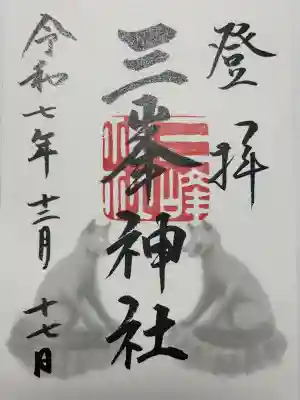 登拝
三峯神社
令和七年十二月十七日
三峰